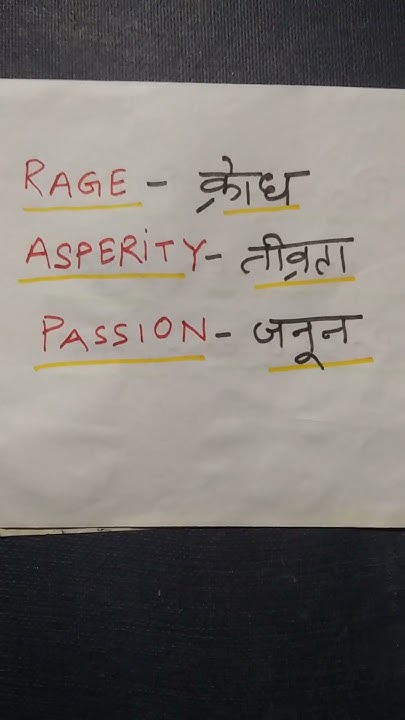 RAGE - क्रोध
ASPERITY - तीव्रता
PASSION - जनून